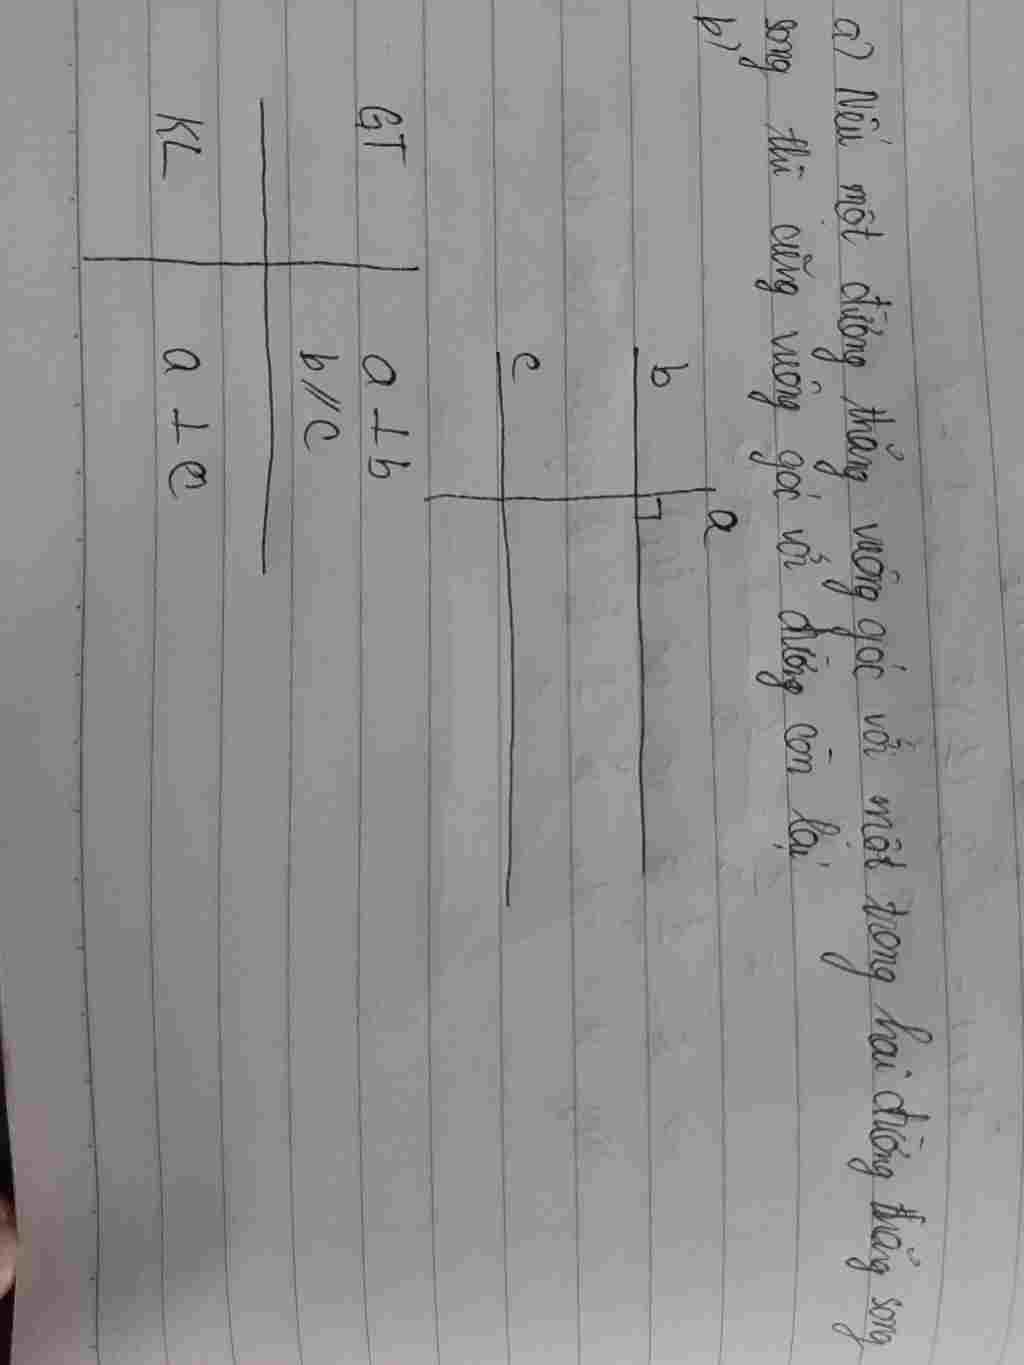 a) Nếu một đường thẳng vuông góc với một trong hai đường thẳng song
song thì cũng vuông góc với đường còn lại
b)
a
b
c
GT a ⊥ b
b // c
KL a ⊥ c